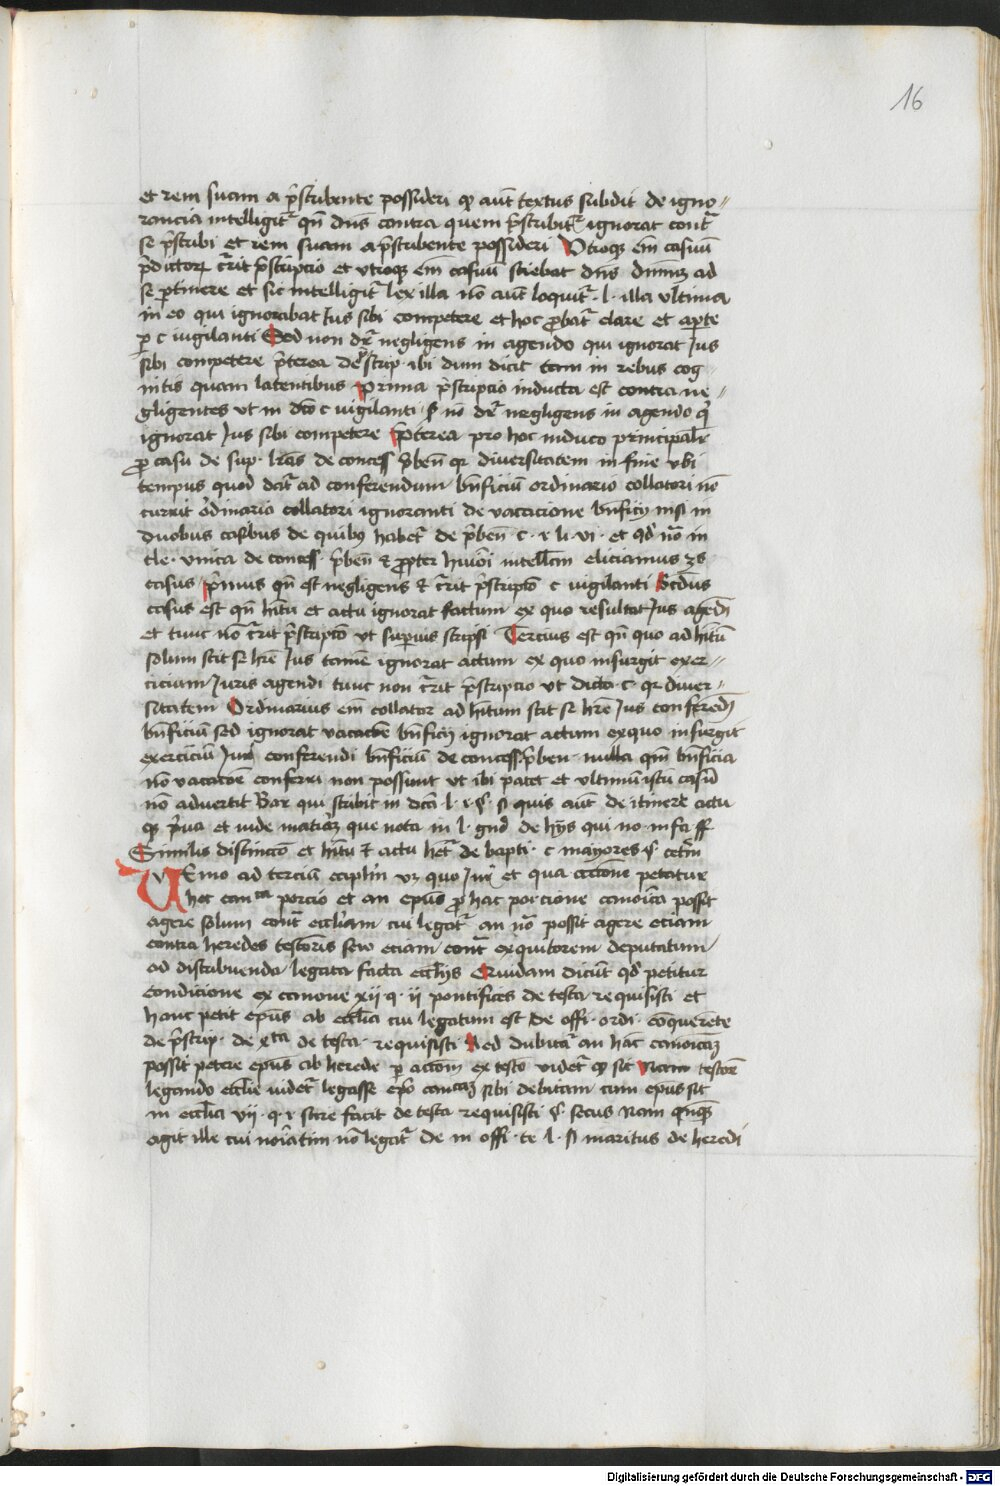 16
et rem suam a p̄scribente possideri qꝫ aūt textus subdit de igno-
rancia intelligit᷑ qn̄ dn̄s contra quem p̄scribit᷑ ignorat cont᷑
se p̄scribi et rem suam a p̄scribente possideri Utroqꝫ em̄ casuū
p̄dictoꝝ c᷑rit p̄scripcio et utroqꝫ em̄ casuū sciebat dn̄s dnīuꝫ ad
se p̄tinere et sic intelligit᷑ lex illa nō aūt loquit᷑ l. illa ultima
in eo qui ignorabat Jus sibi competere et hoc ꝓbat᷑ clare et aꝑte
ꝑ c vigilanti Sed non dr̄ negligens in agendo qui ignorat Jus
sibi competere p̄terea de p̄scrip. ibi dum dicit tam in rebus cog-
nitis quam latentibus Prima p̄scripcio inducta est contra ne-
gligentes ut in dc̄o c vigilanti. sꝫ nō dr̄ negligens in agendo qͥ
ignorat Jus sibi competere Pret̄ea pro hoc induco principalr̄
ꝓ casu de sup. lr̄as de concess p̄ben̄ qꝛ diversitatem in fine ubi
tempus quod dat᷑ ad conferendum bn̄ficiū ordinario collatori nō
currit Ordinario collatori ignoranti de vacacione bn̄ficij nisi in
duobus casibus de quibus habet᷑ de p̄ben̄. c. 1. li. vi. et qd̓ nō in
cle. unica de concess. p̄ben̄ et ꝓpter huiꝰi intellm̄ eliciamus 3s
casus primus qn̄ est negligens et c᷑rit p̄scriptō c vigilanti Scd̄us
casus est qn̄ hītu et actu ignorat factum ex quo resultat Jus agēdi
et tunc nō c᷑rit p̄scriptō ut suꝑius scripsi Tercius est qn̄ quo ad hītū
solum scit se hr̄e Jus tamē ignorat actum ex quo insurgit exer-
cicium Juris agendi tunc non c᷑rit p̄scripcio ut dicta c. qꝛ diver-
sitatem Ordinarius em̄ collator ad hītum scit se hr̄e Jus conferēdi
bn̄ficiū sed ignorat vacacōe bn̄ficij ignorat actum ex quo insurgit
exerciciū Juris conferendi bn̄ficiū de concess. p̄ben. nulla qm̄ bn̄ficia
nō vacacōe conferri non possunt ut ibi patet et ultimū istū casū
nō advertit Bar qui scribit in dicā l. 1. §. si quis aūt de itinere actu
qꝫ p̄ua et vide mat̄iaꝫ que nota in l. gn̄d de hijs qui no. infa ff
Similis distinctō et hītu et actu het᷑ de bapti. c mayores §. cetm̄
VEnio ad terciū cap̄lm̄ uꝫ quo Jur᷑ et qua accōne petatur
hec can᷑ca porcio et an ep̄us ꝓ hac porcione canōica possit
agere solum cont᷑ eccl̄iam cui legat᷑ an nō possit agere etiam
contra heredes testoris seu etiam cont᷑ exequitorem deputatum
ad distribuenda legata facta eccl̄ijs Quidam dicūt qd̓ petitur
condicione ex canone xij q. ij pontifices de testa requisisti et
hanc petit ep̄us ab eccl̄ia cui legatum est de offi. ordi. cōquerēte
de p̄scrip. de xͭᵃ de testa. requisisti Sed dubitat᷑ an hāc canonicaꝫ
possit petere ep̄us ab herede ꝑ actiōm ex testō videt᷑ qꝫ sic Nam testōr
legando eccl̄ie videt᷑ legasse ep̄o canicaꝫ sibi debitam cum ep̄us sit
in eccl̄ia vij. q. 1 scire facit de testa requisisti §. secus Nam qn̄qꝫ
agit ille cui noīatim nō legat᷑ de in offi. te l. si maritus de heredi
Digitalisierung gefördert durch die Deutsche Forschungsgemeinschaft - DFG